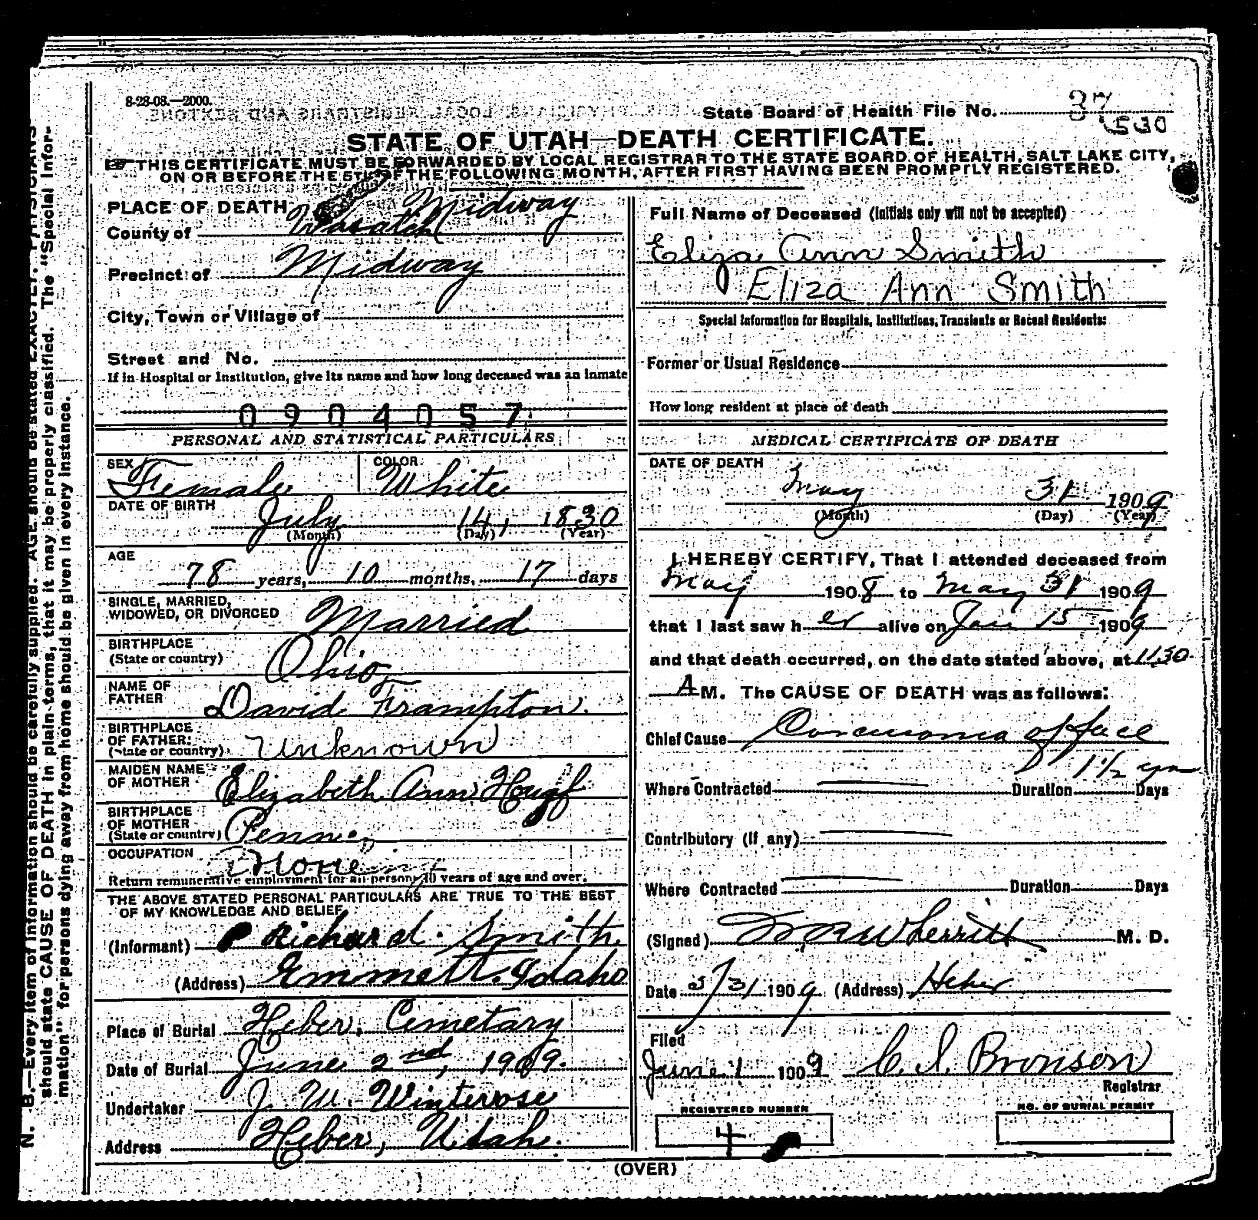 8-28-08.—2000.
State Board of Health File No. 37
530
STATE OF UTAH—DEATH CERTIFICATE.
THIS CERTIFICATE MUST BE FORWARDED BY LOCAL REGISTRAR TO THE STATE BOARD OF HEALTH, SALT LAKE CITY,
ON OR BEFORE THE 5th OF THE FOLLOWING MONTH, AFTER FIRST HAVING BEEN PROMPTLY REGISTERED.
PLACE OF DEATH Midway
County of Wasatch
Precinct of Midway
City, Town or Village of
Street and No.
If in Hospital or Institution, give its name and how long deceased was an inmate
0904057
PERSONAL AND STATISTICAL PARTICULARS
SEX Female COLOR White
DATE OF BIRTH July 14, 1830
(Month) (Day) (Year)
AGE
78 years, 10 months, 17 days
SINGLE, MARRIED,
WIDOWED, OR DIVORCED Married
BIRTHPLACE
(State or country) Ohio
NAME OF
FATHER David Frampton.
BIRTHPLACE
OF FATHER:
(State or country) Unknown
MAIDEN NAME
OF MOTHER Elizabeth Ann
BIRTHPLACE
OF MOTHER
(State or country) Penn
OCCUPATION None
Return remunerative employment for all persons 10 years of age and over.
THE ABOVE STATED PERSONAL PARTICULARS ARE TRUE TO THE BEST
OF MY KNOWLEDGE AND BELIEF
(Informant) Richard Smith
(Address) Emmett. Idaho
Place of Burial Heber, Cemetary
Date of Burial June 2nd, 1909.
Undertaker J. W. Winterose
Address Heber, Utah.
Full Name of Deceased (Initials only will not be accepted)
Eliza Ann Smith
Eliza Ann Smith
Special Information for Hospitals, Institutions, Transients or Recent Residents:
Former or Usual Residence
How long resident at place of death
MEDICAL CERTIFICATE OF DEATH
DATE OF DEATH
May 31 1909
(Month) (Day) (Year)
I HEREBY CERTIFY, That I attended deceased from
May 1908 to May 31 1909
that I last saw her alive on Jan 15 1909
and that death occurred, on the date stated above, at 11.30
A M. The CAUSE OF DEATH was as follows:
Chief Cause Carcinoma of face
1 1/2 yrs
Where Contracted Duration Days
Contributory (if any)
Where Contracted Duration Days
(Signed) Wherritt M. D.
Date 5/31 1909 (Address) Heber
Filed
June 1 1909 C. I. Bronson
Registrar
REGISTERED NUMBER
4
NO. OF BURIAL PERMIT
(OVER)
N. B.—Every item of information should be carefully supplied. AGE should be stated EXACTLY. PHYSICIANS
should state CAUSE OF DEATH in plain terms, that it may be properly classified. The "Special Infor-
mation" for persons dying away from home should be given in every instance.